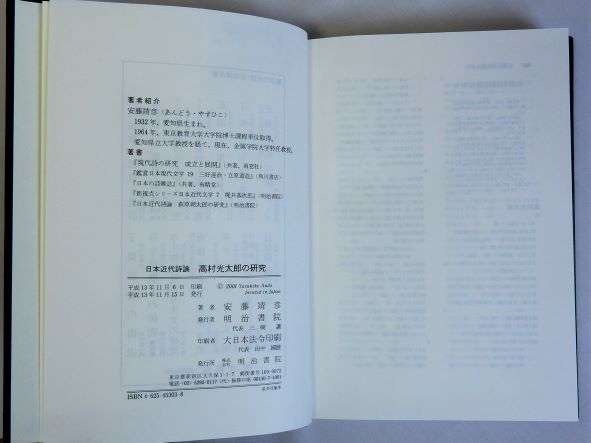 著者紹介
安藤靖彦（あんどう・やすひこ）
1932年、愛知県生まれ。
1964年、東京教育大学大学院博士課程単位取得。
愛知県立大学教授を経て、現在、金城学院大学特任教授。
著書
『現代詩の研究 成立と展開』（共著、南窓社）
『鑑賞日本現代文学 19 三好達治・立原道造』（角川書店）
『日本の詩雑誌』（共著、有精堂）
『新視点シリーズ日本近代文学 7 梶井基次郎』（明治書院）
『日本近代詩論 萩原朔太郎の研究』（明治書院）
日本近代詩論 高村光太郎の研究
平成13年11月6日 印刷
平成13年11月15日 発行
© 2001 Yasuhiko Ando
printed in Japan
著者 安藤靖彦
発行者 明治書院
代表 三樹 譲
印刷者 大日本法令印刷
代表 田中
発行所 株式会社 明治書院
東京都新宿区大久保1-1-7 郵便番号169-0072
ISBN 4-625-45303-8